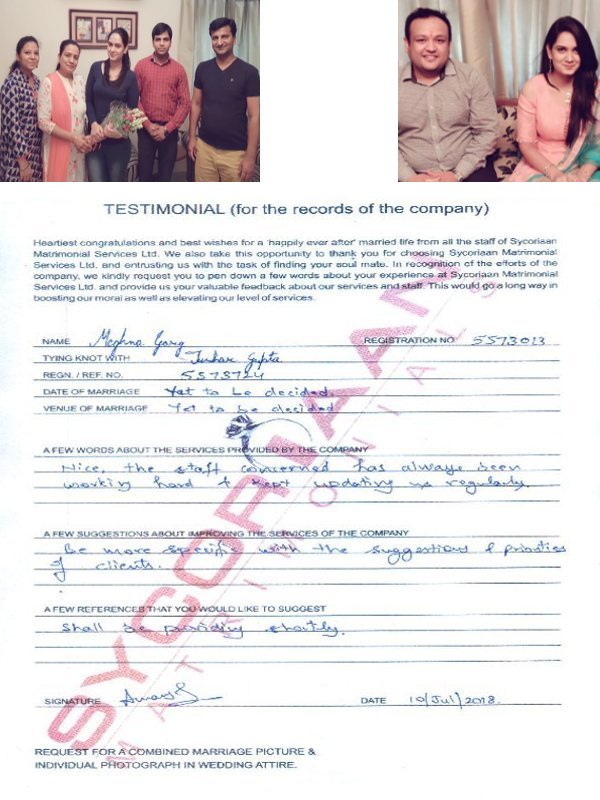 TESTIMONIAL (for the records of the company)
Heartiest congratulations and best wishes for a 'happily ever after' married life from all the staff of Sycoriaan
Matrimonial Services Ltd. We also take this opportunity to thank you for choosing Sycoriaan Matrimonial
Services Ltd. and entrusting us with the task of finding your soul mate. In recognition of the efforts of the
company, we kindly request you to pen down a few words about your experience at Sycoriaan Matrimonial
Services Ltd. and provide us your valuable feedback about our services and staff. This would go a long way in
boosting our moral as well as elevating our level of services.
NAME Meghna Garg REGISTRATION NO. 5573013
TYING KNOT WITH Tushar Gupta
REGN. / REF. NO. 5573724
DATE OF MARRIAGE Yet to be decided.
VENUE OF MARRIAGE Yet to be decided
A FEW WORDS ABOUT THE SERVICES PROVIDED BY THE COMPANY
Nice, the staff concerned has always been
working hard & kept updating us regularly.
A FEW SUGGESTIONS ABOUT IMPROVING THE SERVICES OF THE COMPANY
Be more specific with the suggestions & priorities
of clients.
A FEW REFERENCES THAT YOU WOULD LIKE TO SUGGEST
Shall be providing shortly.
SIGNATURE DATE 10/Jul/2018.
REQUEST FOR A COMBINED MARRIAGE PICTURE &
INDIVIDUAL PHOTOGRAPH IN WEDDING ATTIRE.
SYCORIAAN
MATRIMONIALS